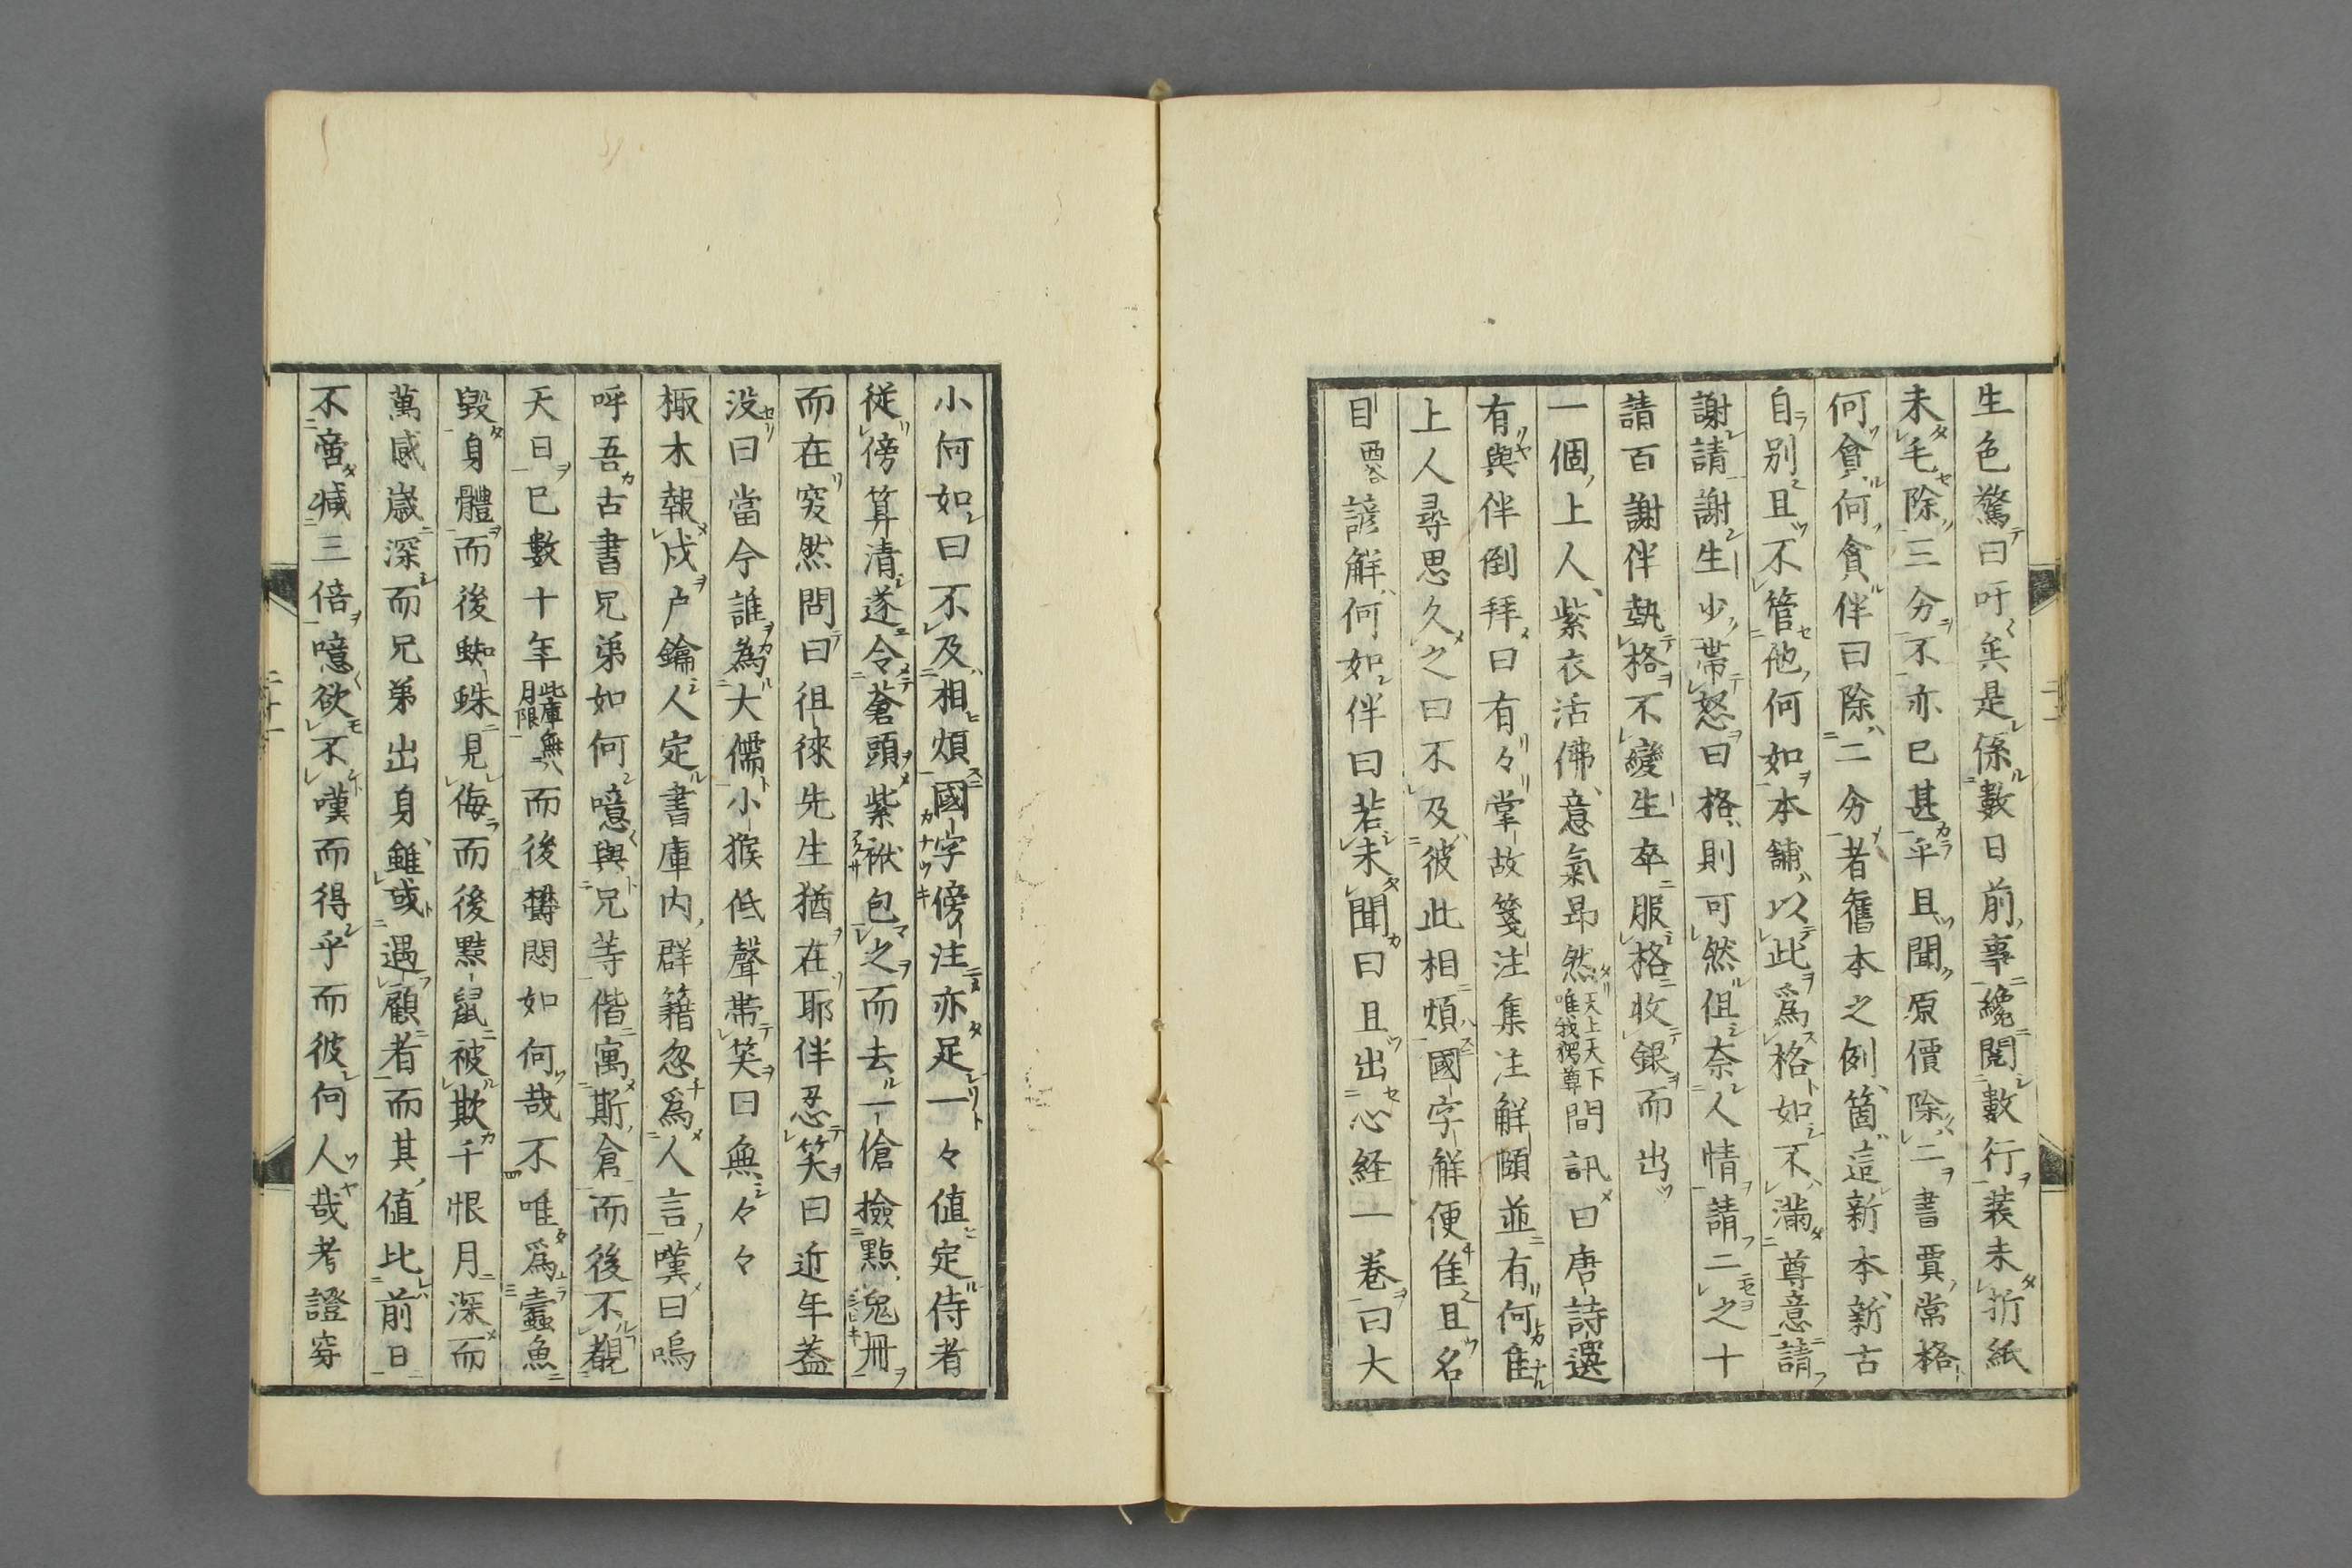 生色驚曰吁矣是係數日前事纔閲數行装未折紙
未毛除三分不亦已甚乎且聞原價除二書賈常格
何貪何貪伴曰除二分者舊本之例箇這新本新古
自別且不管他何如本舗以此爲格如不滿尊意請
謝請謝生少帯怒曰格則可然但奈人情請二之十
請百謝伴執格不變生卒服格收銀而出
一個上人紫衣活佛意氣昂然天上天下唯我獨尊間訊曰唐詩選
有與伴倒拜曰有々掌故箋注集注解頤並有何隹
上人尋思久之曰不及彼此相煩國字解便隹且名
目諺解何如伴曰若未聞曰且出心経一巻曰大
小何如曰不及相煩國字傍注亦足一々値定侍者
従傍算清遂令蒼頭紫袱包之而去一傖撿點兔册
而在突然問曰徂徠先生猶在耶伴忍笑曰近年葢
没曰當今誰為大儒小猴低聲帯笑曰無々々
椒木報戌户鑰人定書庫内群籍忽爲人言嘆曰嗚
呼吾古書兄弟如何噫與兄等偕寓斯倉而後不覩
天日已數十年此庫無月限而後欝悶如何哉不唯爲蠧魚
毀身體而後蜘蛛見侮而後黠鼠被欺千恨月深而
萬感歳深而兄弟出身雖或遇顧者而其値比前日
不啻減三倍噫欲不嘆而得乎而彼何人哉考證穿